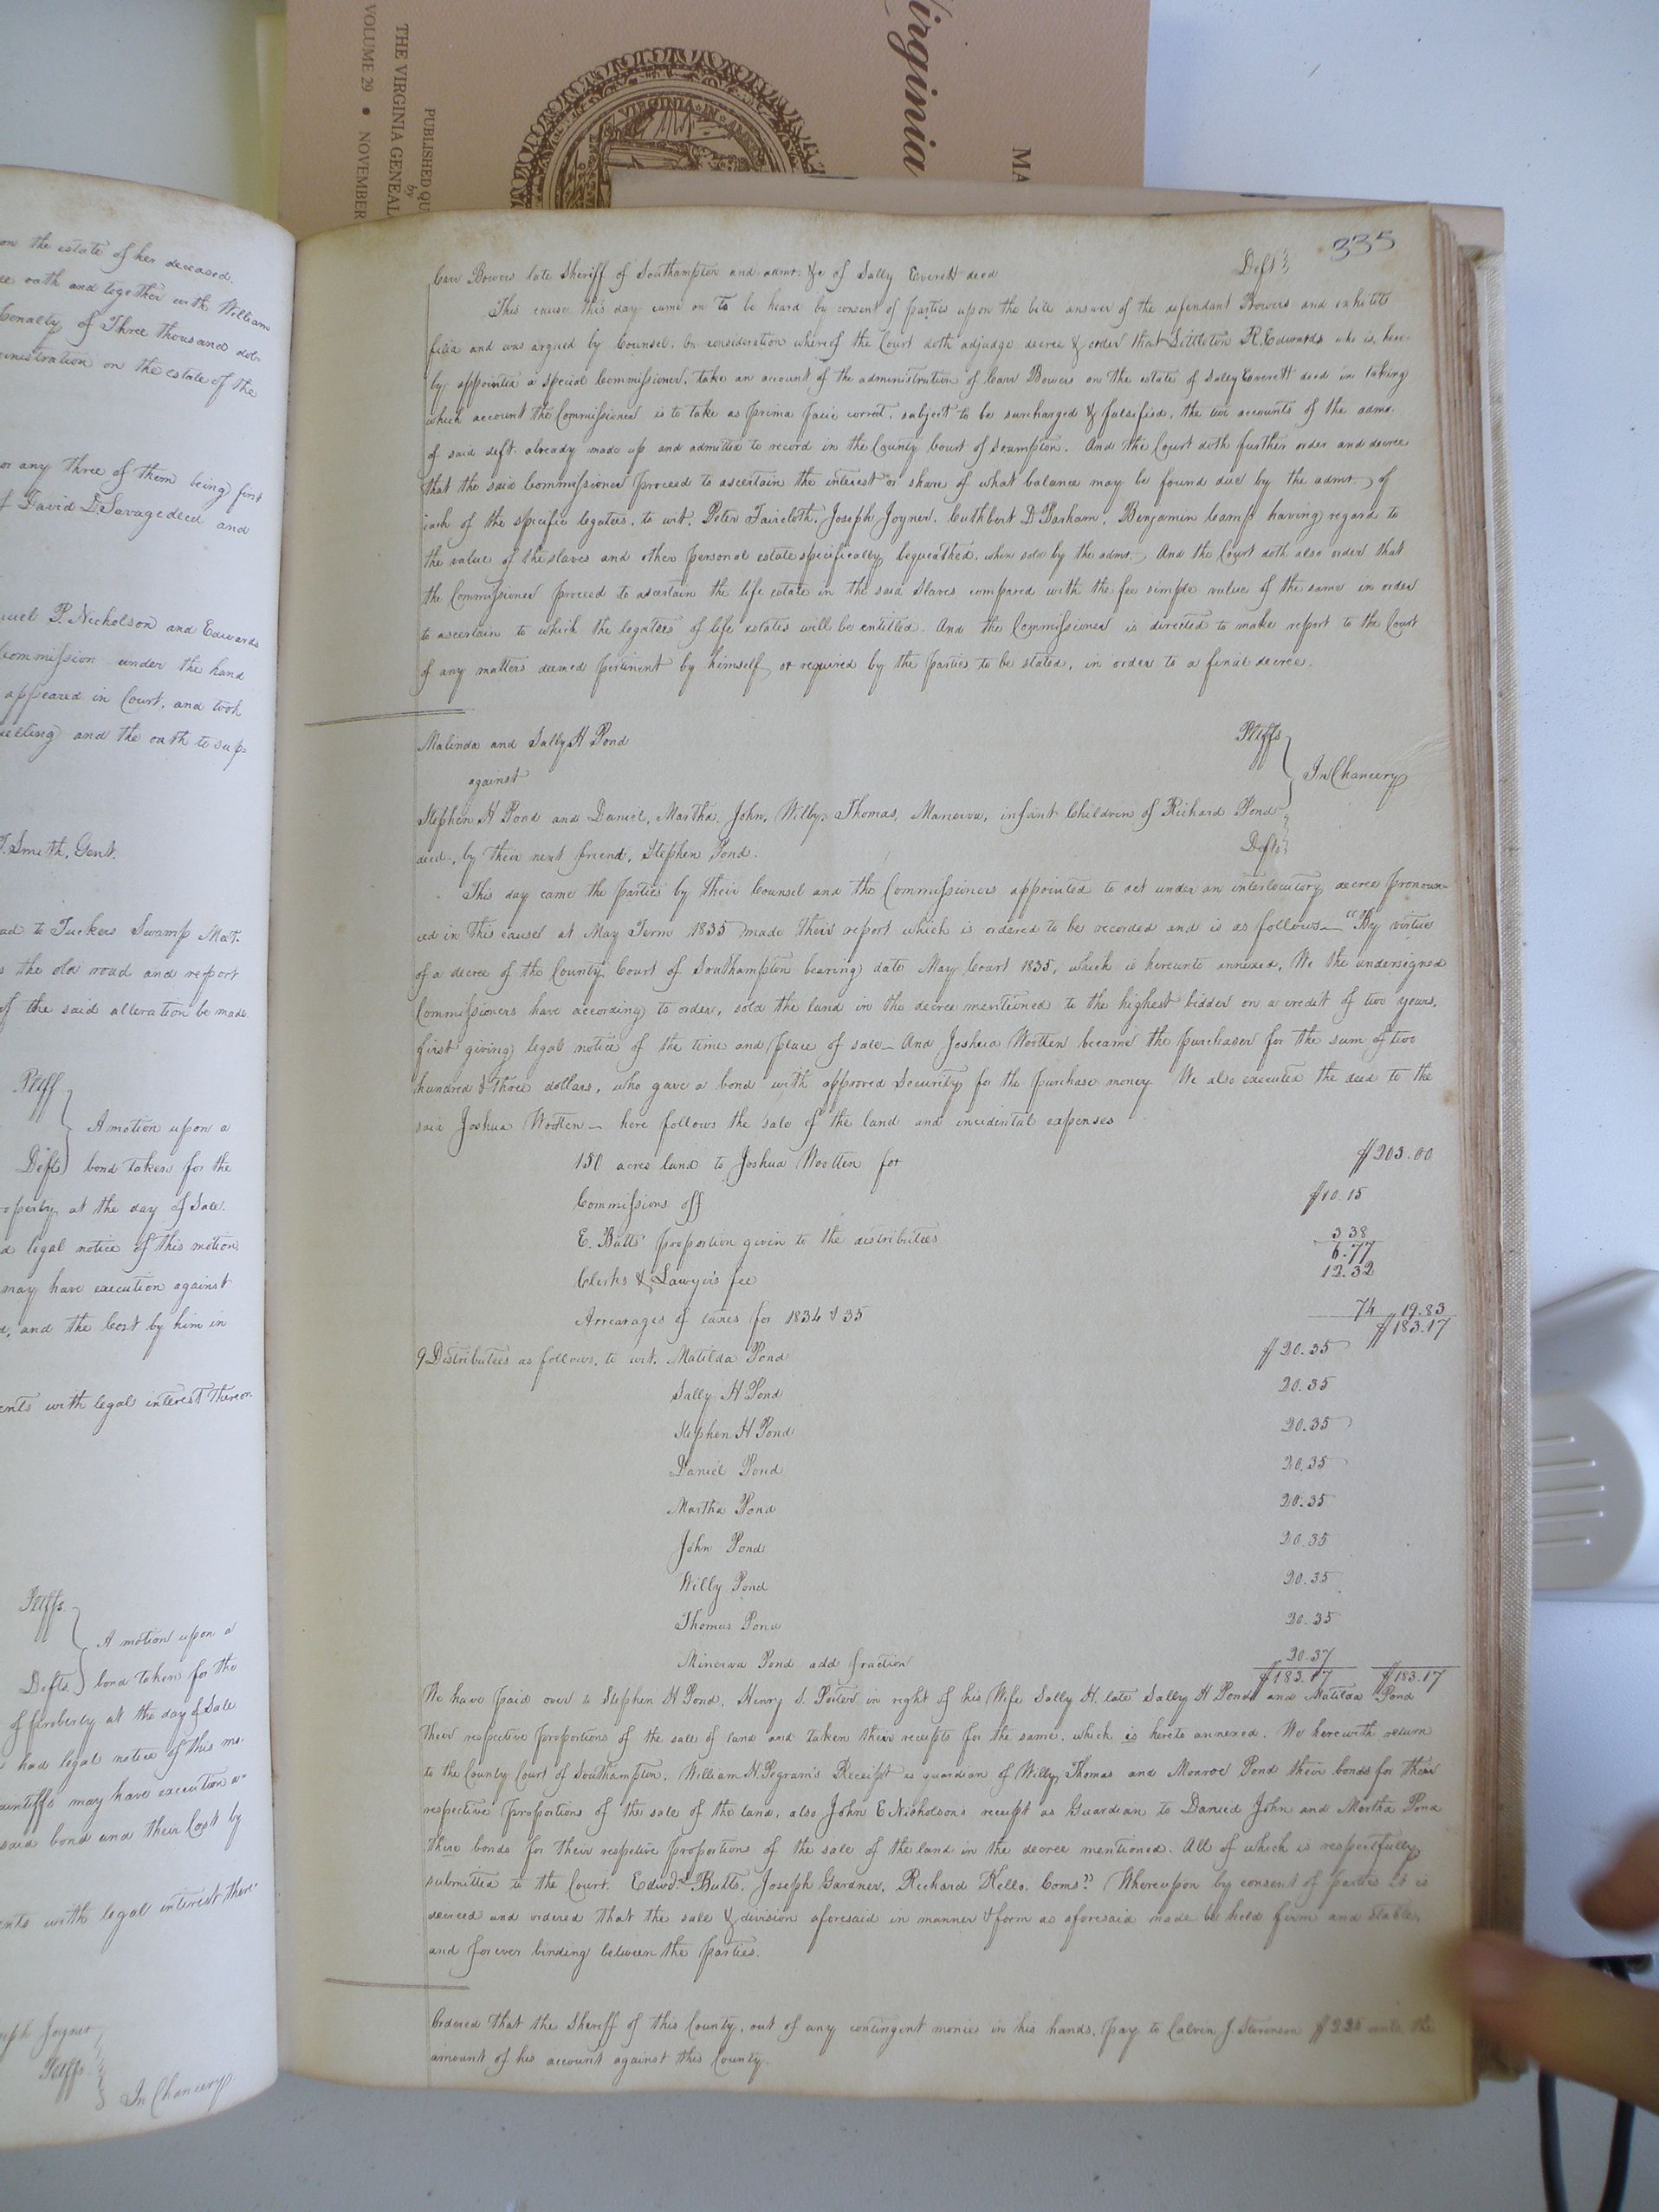 Virginia
MA
PUBLISHED QU
by
THE VIRGINIA GENEAL
VOLUME 29 • NOVEMBER
VIRGINIA IN
on the estate of her deceased.
oath and together with William
Penalty of Three thousand dol-
ministration on the estate of the
or any three of them being first
David D Savage decd and
P. Nicholson and Edwards
Commission under the hand
appeared in Court, and took
and the oath to sup-
T. Smith, Gent.
to Tuckers Swamp Meet.
the old road and report
of the said alteration be made.
Pltff
A motion upon a
Defts bond taken for the
at the day of Sale.
legal notice of this motion
may have execution against
and the Cost by him in
with legal interest thereon
Pltffs
A motion upon a
Defts bond taken for the
of property at the day of Sale
had legal notice of this mo-
may have execution a-
said bond and their Cost by
with legal interest there-
Joyner
Pltffs
In Chancery
335
Carr Bowers late Sheriff of Southampton and admr. &c of Sally Everett decd Deft
This cause this day came on to be heard by consent of parties upon the bill answer of the defendant Bowers and exhibits
filed and was argued by Counsel. On consideration whereof the Court doth adjudge decree & order that Littleton R. Edwards who is here-
by appointed a special Commissioner, take an account of the administration of Carr Bowers on the estate of Sally Everett decd in taking
which account the Commissioner is to take as prima facie correct, subject to be surcharged & falsified, the two accounts of the admr.
of said deft. already made up and admitted to record in the County Court of Soampton. And the Court doth further order and decree
that the said Commissioner proceed to ascertain the interest or share of what balance may be found due by the admr. of
each of the specific legatees, to wit, Peter Faircloth, Joseph Joyner, Cuthbert D Barham, Benjamin Camp having regard to
the value of the slaves and other personal estate specifically bequeathed, when sold by the admr. And the Court doth also order that
the Commissioner proceed to ascertain the life estate in the said Slaves compared with the fee simple value of the same in order
to ascertain to which the legatees of life estates will be entitled. And the Commissioner is directed to make report to the Court
of any matters deemed pertinent by himself or required by the parties to be stated, in order to a final decree.
Malinda and Sally H Pond Pltffs
against In Chancery
Stephen H Pond and Daniel, Martha, John, Wilby, Thomas, Manerva, infant Children of Richard Pond
decd., by their next friend, Stephen Pond. Defts
This day came the parties by their Counsel and the Commissioners appointed to act under an interlocutory decree pronoun-
ced in this cause at May Term 1835 made their report which is ordered to be recorded and is as follows— "By virtue
of a decree of the County Court of Southampton bearing date May Court 1835, which is hereunto annexed, We the undersigned
Commissioners have according to order, sold the land in the decree mentioned to the highest bidder on a credit of two years,
first giving legal notice of the time and place of sale— And Joshua Wootten became the purchaser for the sum of two
hundred & three dollars, who gave a bond with approved Security for the purchase money We also executed the deed to the
said Joshua Wootten— here follows the sale of the land and incidental expenses
150 acres land to Joshua Wootten for $203.00
Commissions off $10.15
E. Butts' proportion given to the distributees 3.38
6.77
Clerks & Lawyers fee 12.32
Arrearages of taxes for 1834 & 35 74 19.83
$183.17
9 Distributees as follows, to wit, Matilda Pond $20.35
Sally H Pond 20.35
Stephen H Pond 20.35
Daniel Pond 20.35
Martha Pond 20.35
John Pond 20.35
Willy Pond 20.35
Thomas Pond 20.35
Minerva Pond add fraction 20.37
$183.17 $183.17
We have paid over to Stephen H Pond, Henry S. Porter in right of his Wife Sally H. late Sally H Pond and Matilda Pond
their respective proportions of the sale of land and taken their receipts for the same, which is hereto annexed. We herewith return
to the County Court of Southampton, William N. Pegram's Receipt as guardian of Willy, Thomas and Monroe Pond their bonds for their
respective proportions of the sale of the land, also John E Nicholson's receipt as Guardian to Daniel John and Martha Pond
there bonds for their respective proportions of the sale of the land in the decree mentioned. All of which is respectfully
submitted to the Court. Edwd. Butts, Joseph Gardner, Richard Kello. Coms." Whereupon by consent of parties it is
decreed and ordered that the sale & division aforesaid in manner & form as aforesaid made be held firm and stable,
and forever binding between the parties.
Ordered that the Sheriff of this County, out of any contingent monies in his hands, pay to Calvin J. Stevenson $2.25 the
amount of his account against this County.